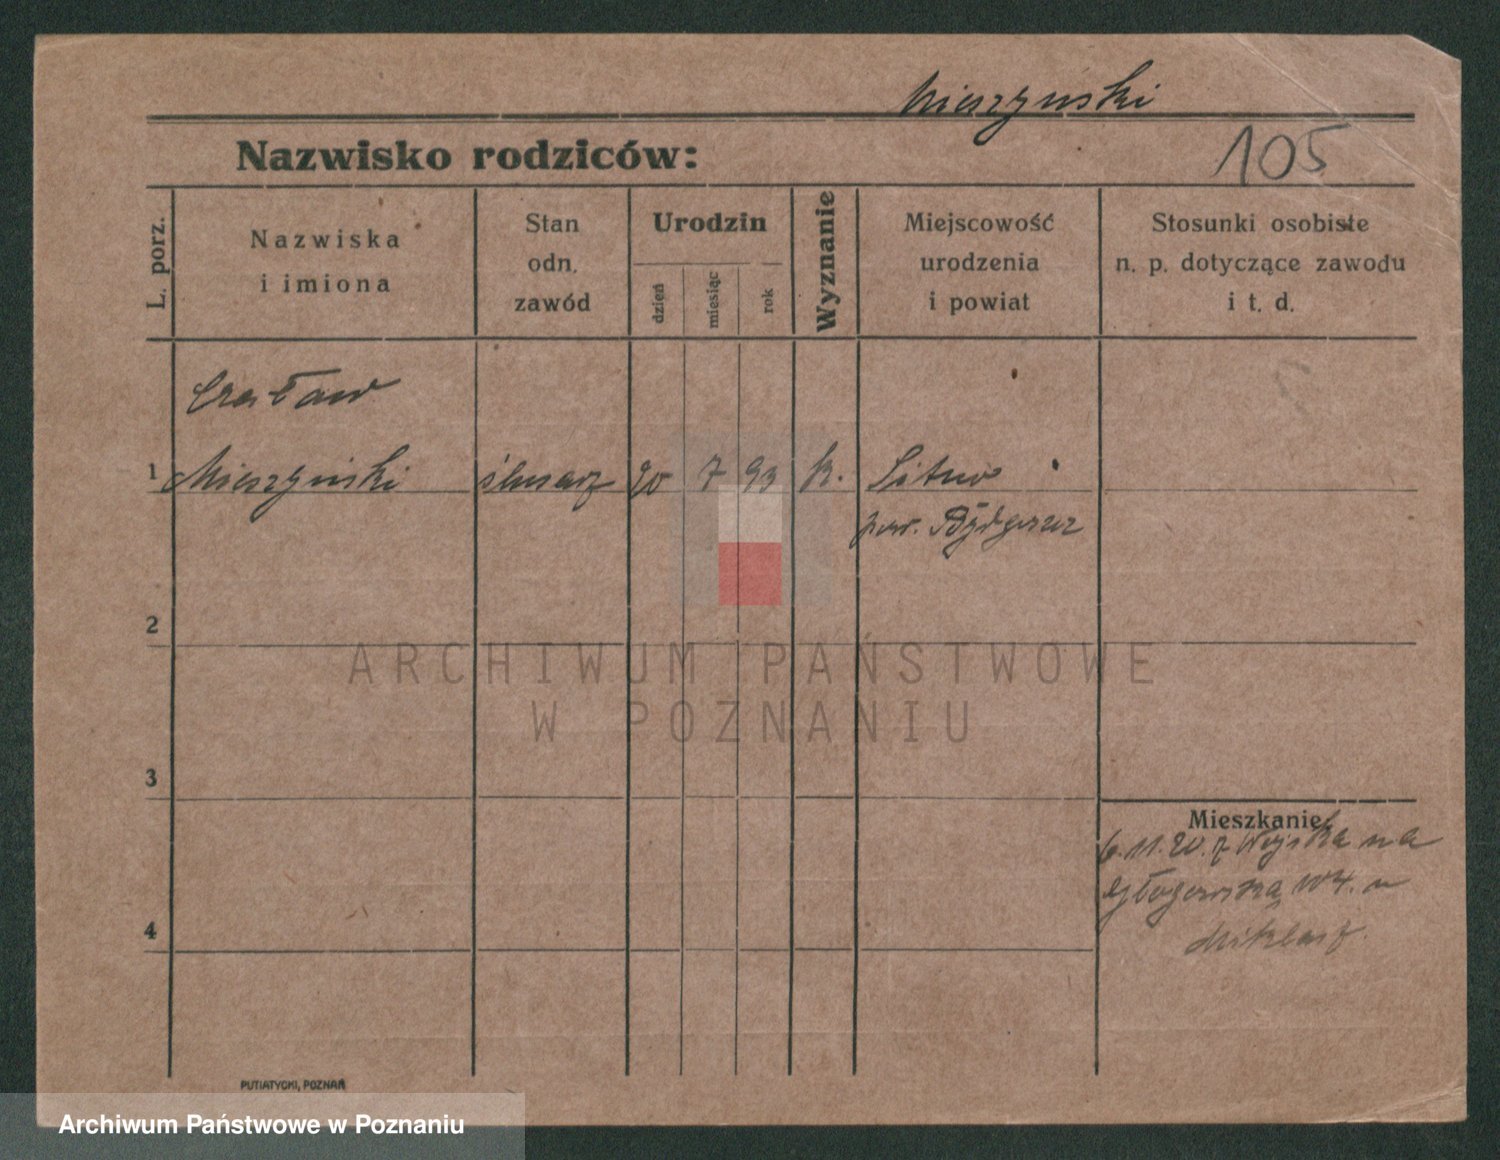 Mieszyński
105
Nazwisko rodziców:
L. porz.
Nazwiska
i imiona
Stan
odn.
zawód
Urodzin
dzień
miesiąc
rok
Wyznanie
Miejscowość
urodzenia
i powiat
Stosunki osobiste
n. p. dotyczące zawodu
i t. d.
Czesław
1 Mieszyński ślusarz 20 7 93 k.
pow. Bydgoszcz
2
ARCHIWUM PAŃSTWOWE
W POZNANIU
3
Mieszkanie
6.11.20. z Wojska na
Głogowską 104. u
4
PUTIATYCKI, POZNAŃ
Archiwum Państwowe w Poznaniu